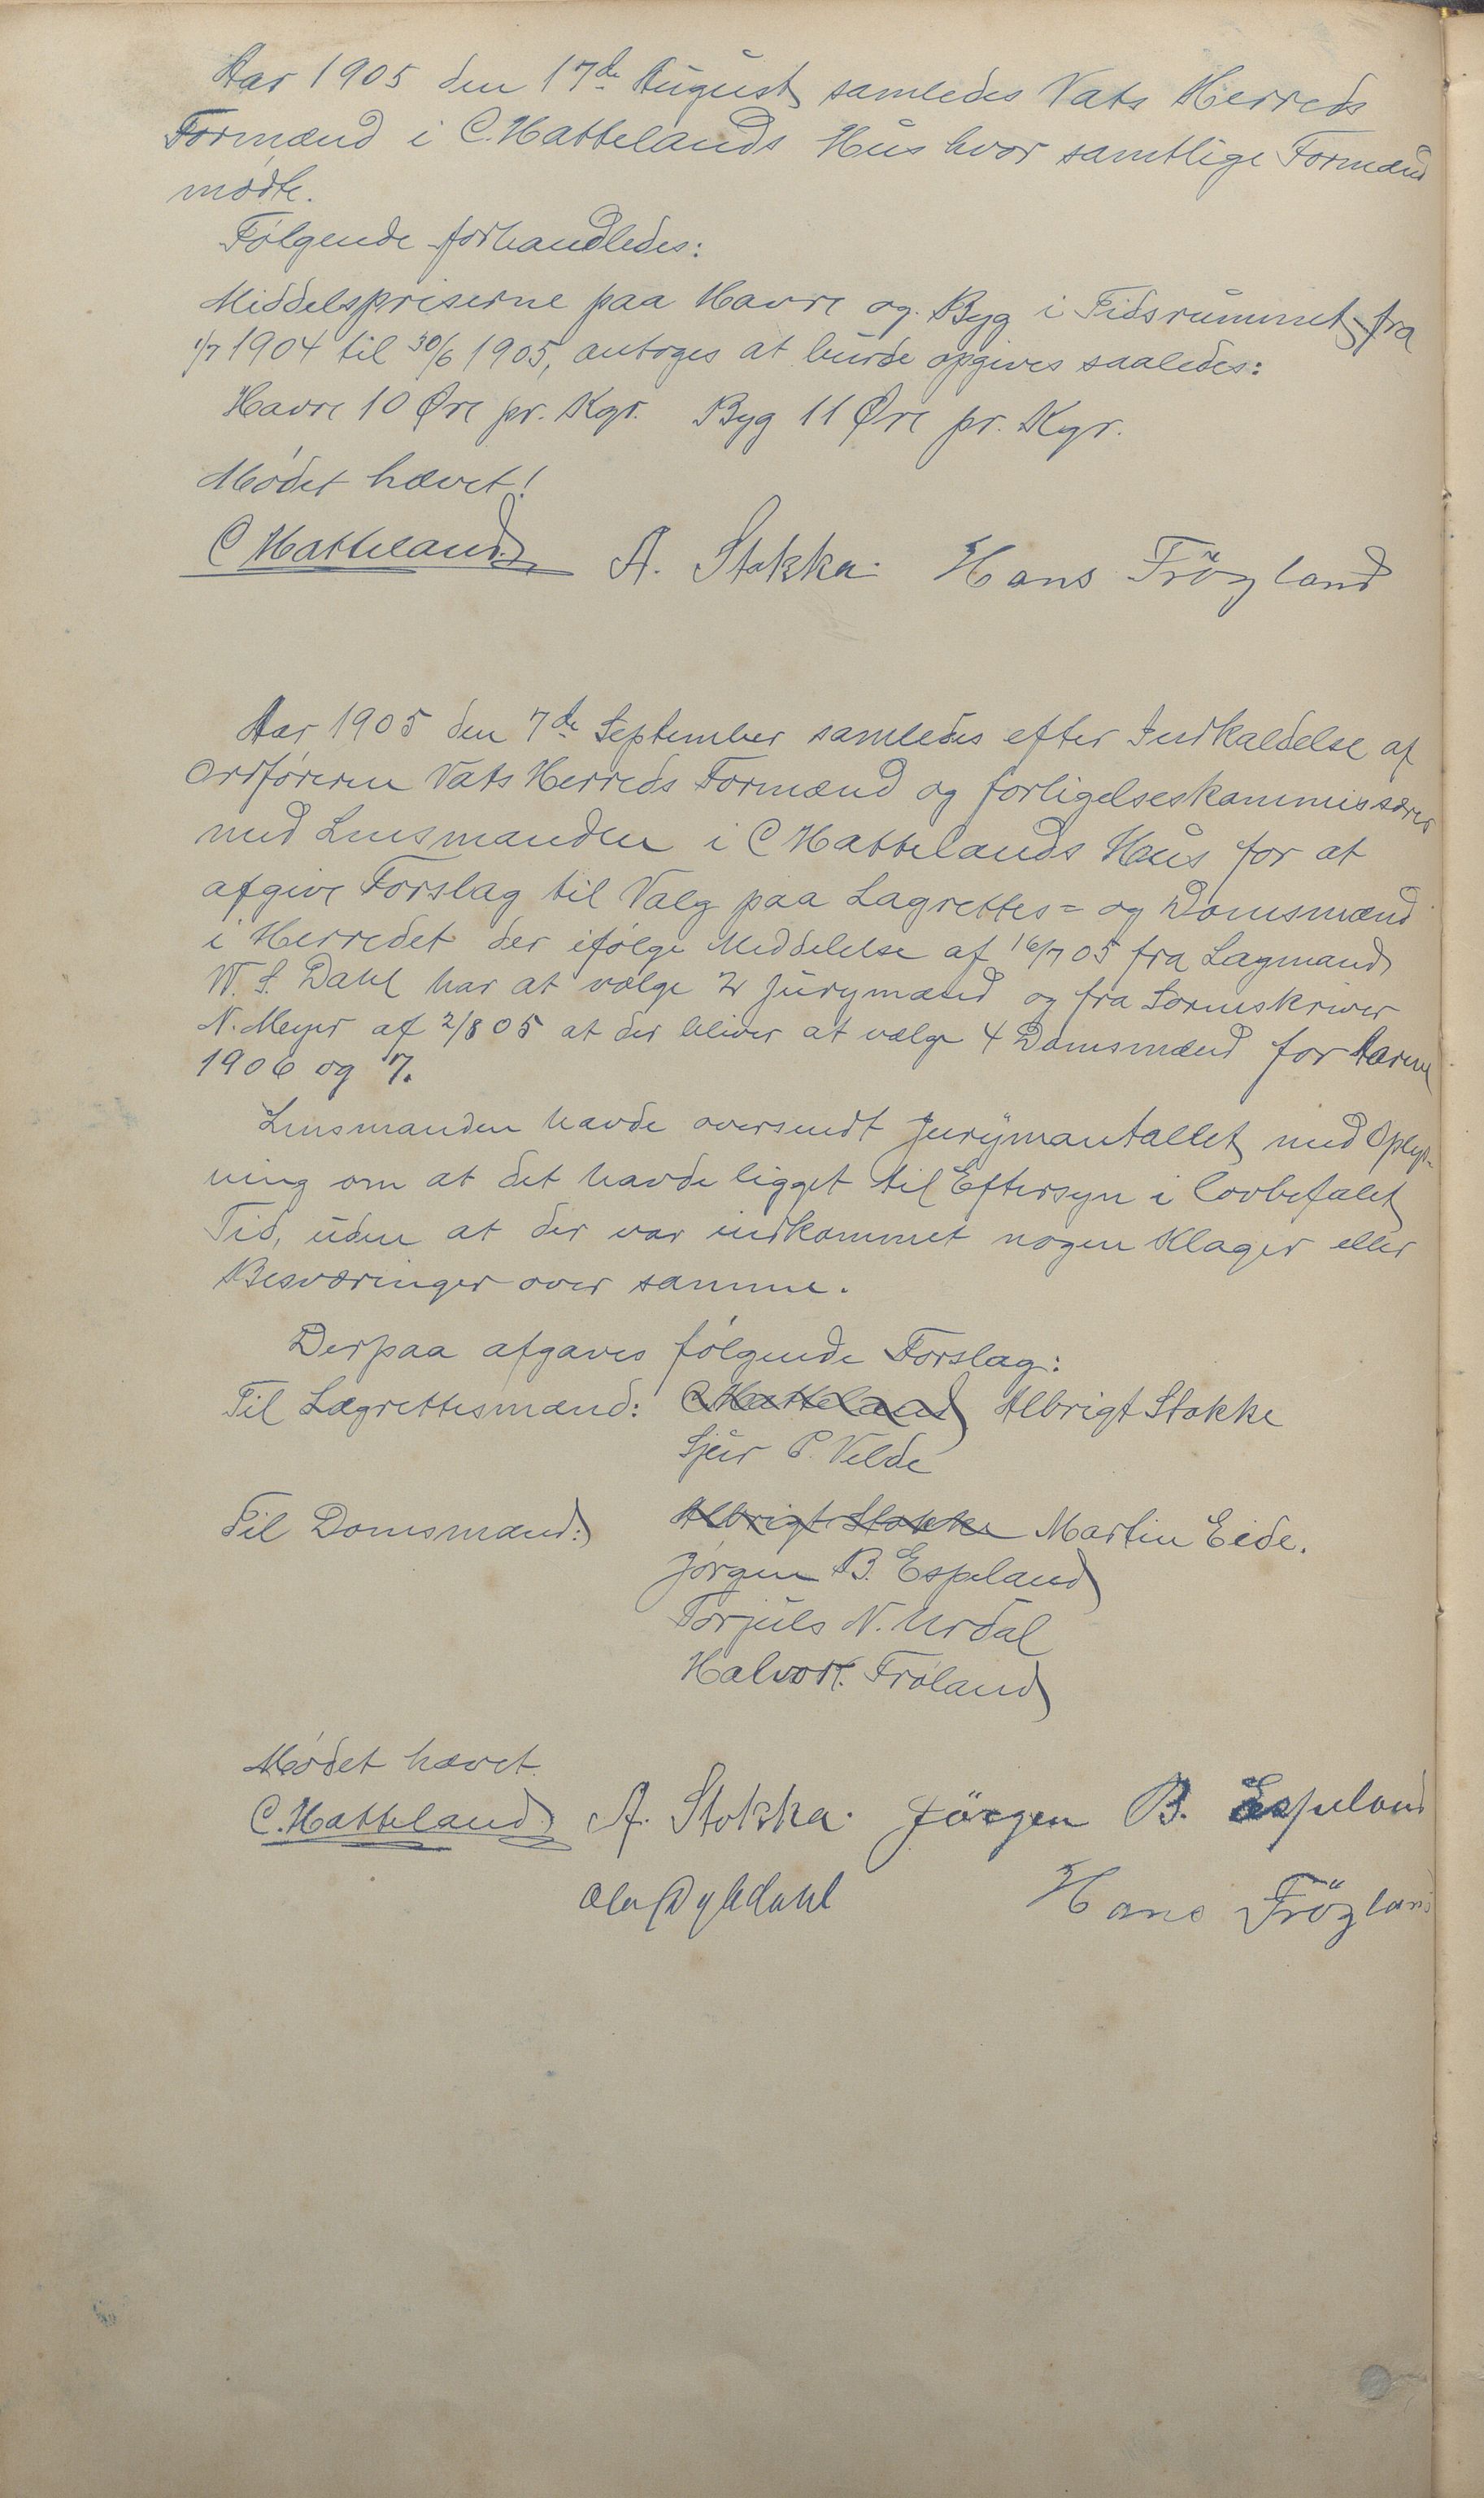 Aar 1905 den 17de August samledes Vats Herreds
Formænd i C. Hattelands Hus hvor samtlige Formænd
mødte.
Følgende forhandledes:
Middelspriserne paa Havre og Byg i Tidsrummet fra
1/7 1904 til 30/6 1905, antoges at burde opgives saaledes:
Havre 10 Øre pr. Kgr. Byg 11 Øre pr. Kgr.
Mødet hævet!
C Hatteland A. Stokka. Hans Frögland
Aar 1905 den 7de September samledes efter Indkaldelse af
Ordføreren Vats Herreds Formænd og forligelseskommissærer
med Lensmanden i C Hattelands Hus for at
afgive Forslag til Valg paa Lagrettes= og Domsmænd
i Herredet der ifølge Meddelelse af 16/7 05 fra Lagmand
W. S. Dahl har at vælge 2 Jurymænd og fra Sorenskriver
N. Meyer af 2/8 05 at der bliver at vælge 4 Domsmænd for Aarene
1906 og 7.
Lensmanden havde oversendt Jurymantallet med Oplys-
ning om at det havde ligget til Eftersyn i lovbefalet
Tid, uden at der var indkommet nogen Klager eller
Besværinger over samme.
Derpaa afgaves følgende Forslag:
Til Lagrettesmænd: C Hatteland Albrigt Stokke
Sjur P. Velde
Til Domsmænd: Albrigt Stokke Martin Eide.
Jørgen B. Espeland
Torjuls N. Urdal
Halvor T. Frøland
Mødet hævet.
C. Hatteland A. Stokka. Jörgen B. Espeland
Ola Hans Frögland